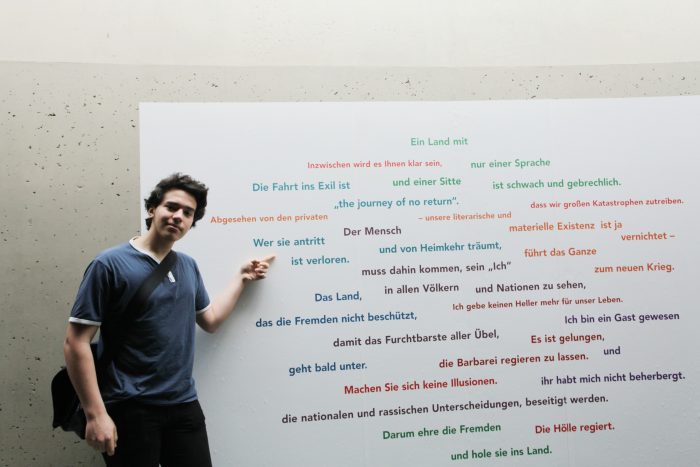 Ein Land mit
Inzwischen wird es Ihnen klar sein, nur einer Sprache
Die Fahrt ins Exil ist und einer Sitte ist schwach und gebrechlich.
„the journey of no return“. dass wir großen Katastrophen zutreiben.
Abgesehen von den privaten – unsere literarische und
materielle Existenz ist ja
Wer sie antritt Der Mensch vernichtet –
und von Heimkehr träumt, führt das Ganze
ist verloren.
muss dahin kommen, sein „Ich“ zum neuen Krieg.
Das Land, in allen Völkern und Nationen zu sehen,
Ich gebe keinen Heller mehr für unser Leben.
das die Fremden nicht beschützt, Ich bin ein Gast gewesen
damit das Furchtbarste aller Übel, Es ist gelungen,
geht bald unter. die Barbarei regieren zu lassen. und
Machen Sie sich keine Illusionen. ihr habt mich nicht beherbergt.
die nationalen und rassischen Unterscheidungen, beseitigt werden.
Darum ehre die Fremden Die Hölle regiert.
und hole sie ins Land.